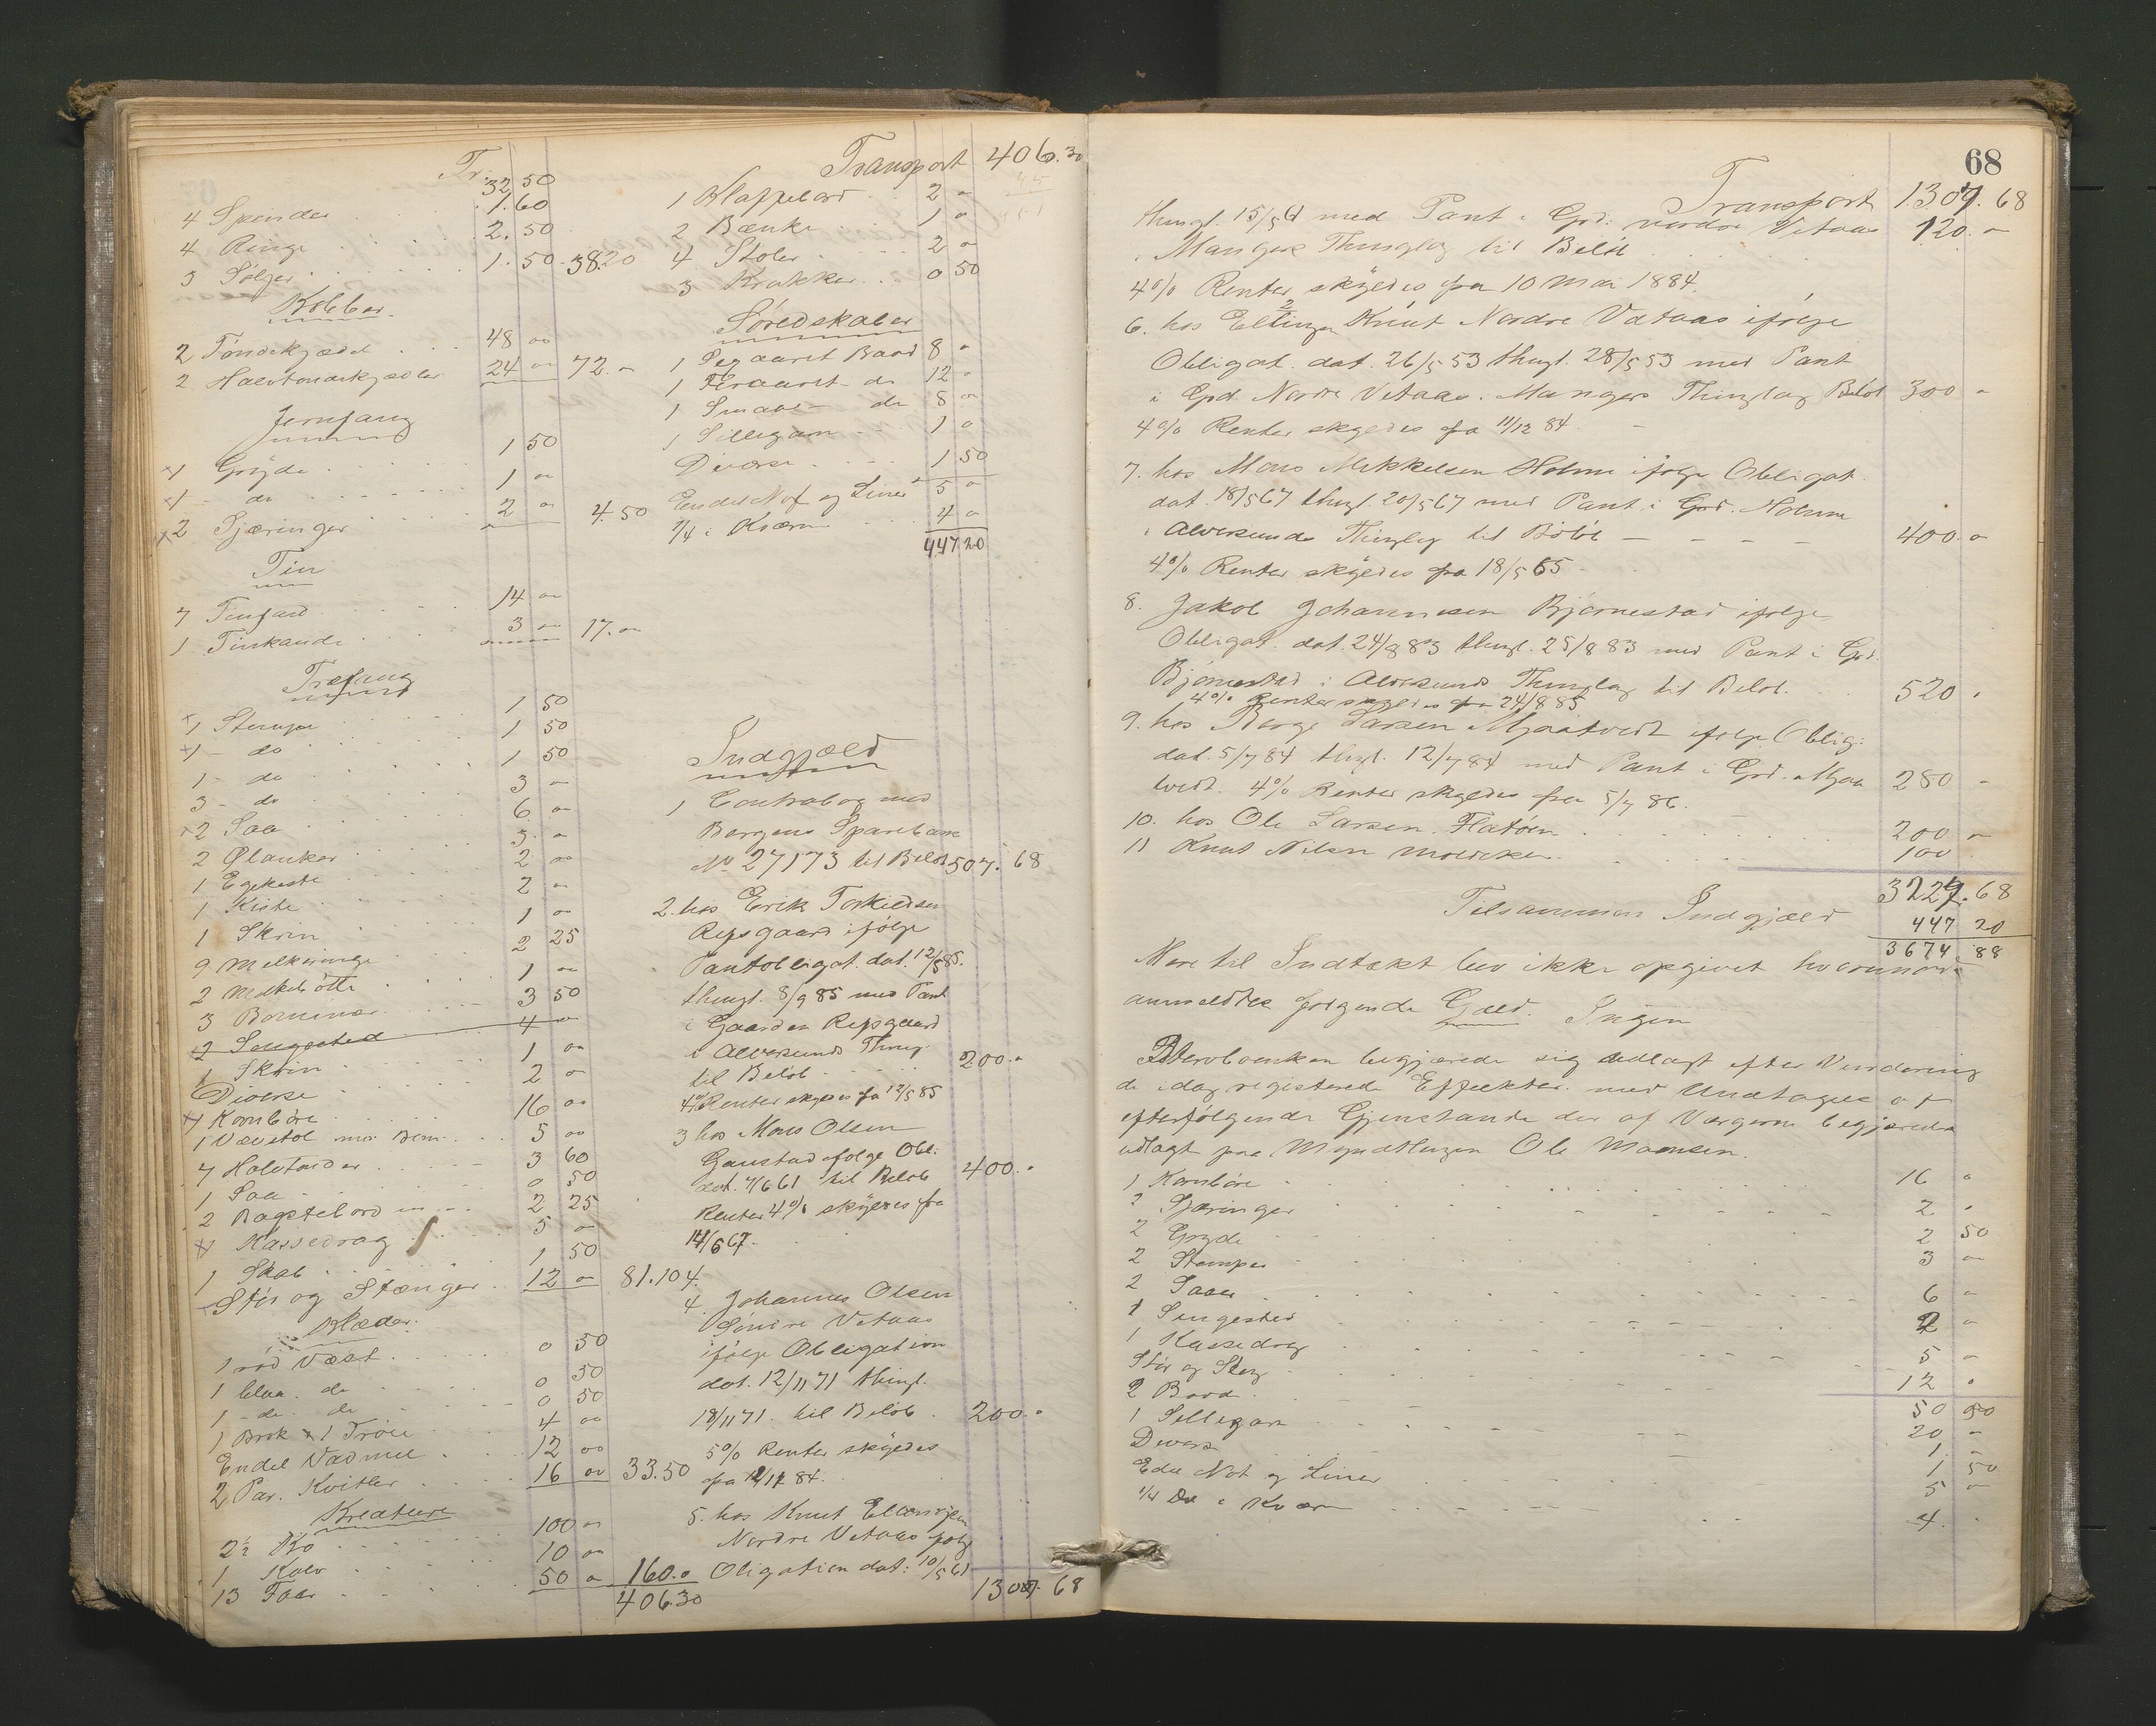 Tr. 32 50
4 Spender 1.60
4 Ringe 2.50
3 Søljer 1.50 38.20
Kobber.
2 Tøndekjedel 48 00
2 Halvtøndekjedler 24 00 72.00
Jernfang
1 Gryde 1 50
1 - do 1 00
2 Tjæringer 2 00 4.50
Tin
7 Tinfad 14 00
1 Tinkande 3 00 17.00
Træfang
1 Stampe 1 50
1 - do 1 50
1 - do 1 50
3 - do 3 -
2 Saa 6 00
2 Ølanker 3. 00
1 Egekiste 2 00
1 Kiste 2 -
1 Skrin 1 00
9 Melkeringe 2 25
2 Melkebøtte 1 00
3 3 50
2 Sengested 4 00
1 Skrin 1 00
Diverse 2 00
1 Kornbøre 16 00
1 Vævstol 5 00
7 Halvtønder 3 60
1 Saa 0 50
2 Bagstebord 2 25
1 Kassedrag 5 00
1 Skab 1 50
Stør og Stænger 12 00 81.10
Klæder.
1 rød Væst 0 50
1 blaa. do 0 50
1 - do. do 0 50
1 Brok & 1 Trøie 4 00
Endel Vadmel 12 00
2 Par. Kvitler 16 00 33.50
Kreature
2½ Ko 100 00
1 Kalv 10 00
13 Faar 50 00 160.0
406.30
Transport 406.30
1 Klappebord 2 00
2 Bænke 1 0
4 Stoler 2 00
3 Krakker 0 50
Søredskaber
1 Sexaaret Baad 8 0
1 Firaaret do 12 0
1 Smaa - do 8 00
1 Sildegarn 1 0
Diverse 1 50
Endel Not og Liner 5 0
1/4 i Kværn 4 0
447 20
Indgjæld
1 Contrabog med
Bergens Sparebank
No 27173 til Beløb 507. 68
2. hos Erik Torkildsen
Repsgaard ifølge
Pantobligat. dat. 12/5 85.
thingl. 8/9 85 med Pant
i Gaarden Repsgaard
i Alversunds Thing.
til Beløb 200.0
4% Renter skyldes fra 12/5 85
3 hos Mons Olsen
Gaustad ifølge Obl.
dat. 7/6 61 til Beløb 400.0
Renter 4% skyldes fra
14/6 67.
4. Johannes Olsen
Søndre Vetaas
ifølge Obligation
dat. 12/11 71 thingl.
18/11 71. til Beløb 200.0
5% Renter skyldes
fra 12/11 84.
5. hos Knut Ellingsen
Nordre Vetaas ifølg
Obligation dat: 10/5 61
1307. 68
68
Transport 1307. 68
thingl. 15/5 61 med Pant i Grd: nordre Vetaas
i Mangers Thinglag til Beløb 120. 00
4% Renter skyldes fra 10 Mai 1884.
6. hos Ellinge Knut Nordre Vetaas ifølge
Obligat. dat. 26/5 53 thingl. 28/5 53 med Pant
i Grd. Nordre Vetaas i Mangers Thinglag Beløb 300 -
4% Renter skyldes fra 11/12 84.
7. hos Mons Mikkelsen Holme ifølge Obligat.
dat. 18/5 67 thingl. 20/5 67 med Pant i Grd. Holme
i Alversunds Thinglag til Beløb 400. 0
4% Renter skyldes fra 18/5 65
8. Jakob Johannesen Bjørnestad ifølge
Obligat. dat. 24/8 83 thingl. 25/8 83 med Pant i Grd.
Bjørnestad i Alversunds Thinglag til Beløb. 520.
4% Renter skyldes fra 24/8 85
9. hos Børge Larsen Mjaatvedt ifølge Oblig:
dat. 5/7 84 thingl. 12/7 84 med Pant i Grd. Mjaa
tvedt. 4% Renter skyldes fra 5/7 86. 280 -
10. hos Ole Larsen Flatøen 200 -
11 Knut Nilsen 100
3227.68
Tilsammen Indgjæld 447 20
3674 88
Mere til Indtækt blev ikke opgivet hvorimod
anmeldtes følgende Gjæld. Ingen
Stervboenken begjærede sig udlagt efter Vurdering
de idag registrerede Effekter med Undtagelse af
efterfølgende Gjenstande der af Værgerne begjæredes
udlagt paa Myndtlingen Ole Monsen.
1 Kornbøre 16 0
2 Tjæringer 2. 0
2 Gryde 2 50
2 Stamper 3 00
2 Saaer 6 -
1 Sengested 2 00
1 Kassedrag 5 -
Stør og Steng 12 0
50 50
2 Baad 20 -
1 Sildegarn 1. -
Divers 1 50
Edel Not og Liner 5 00
1/4 Del i Kværn 4.